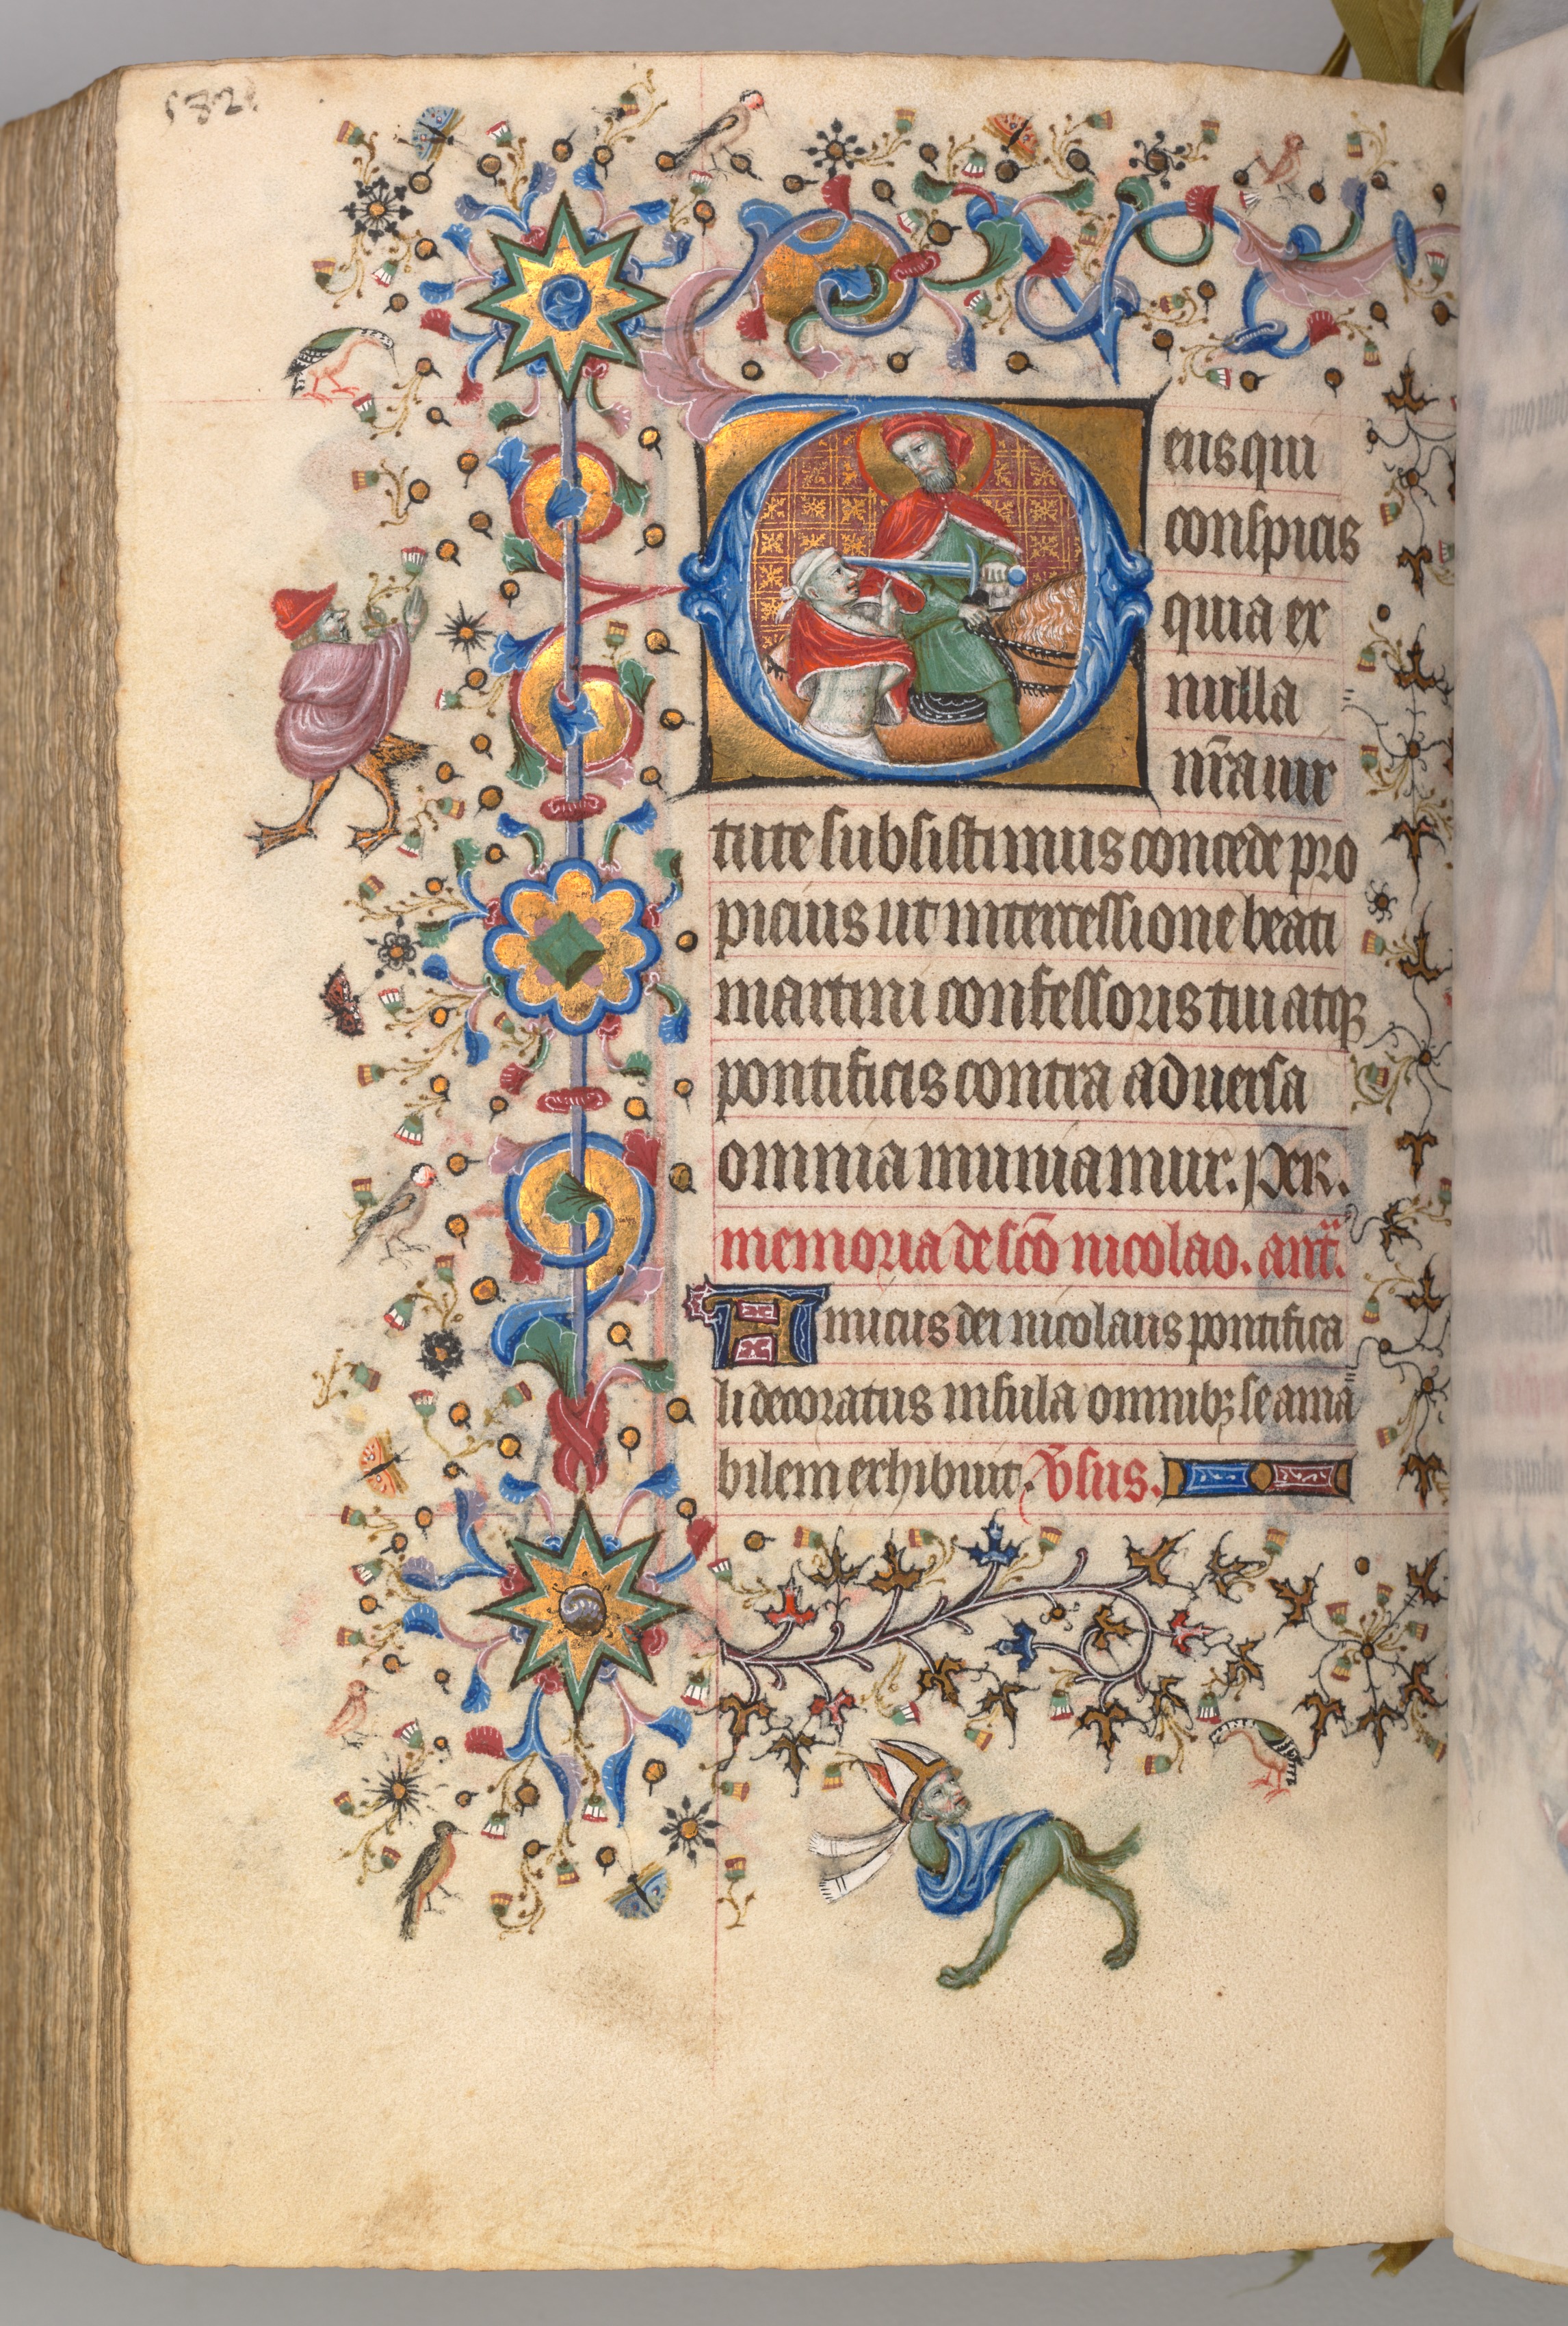 532
Deus qui
conspicis
quia ex
nulla
nr̄a uir
tute subsistimus concede pro
picius ut intercessione beati
martini confessoris tui atqꝫ
pontificis contra aduersa
omnia muniamur. Per.
memoria de sc̄o nicolao. ant̄.
Amicus dei nicolaus pontifica
li decoratus insula omnibꝫ se ama
bilem exhibuit. v̄sus.